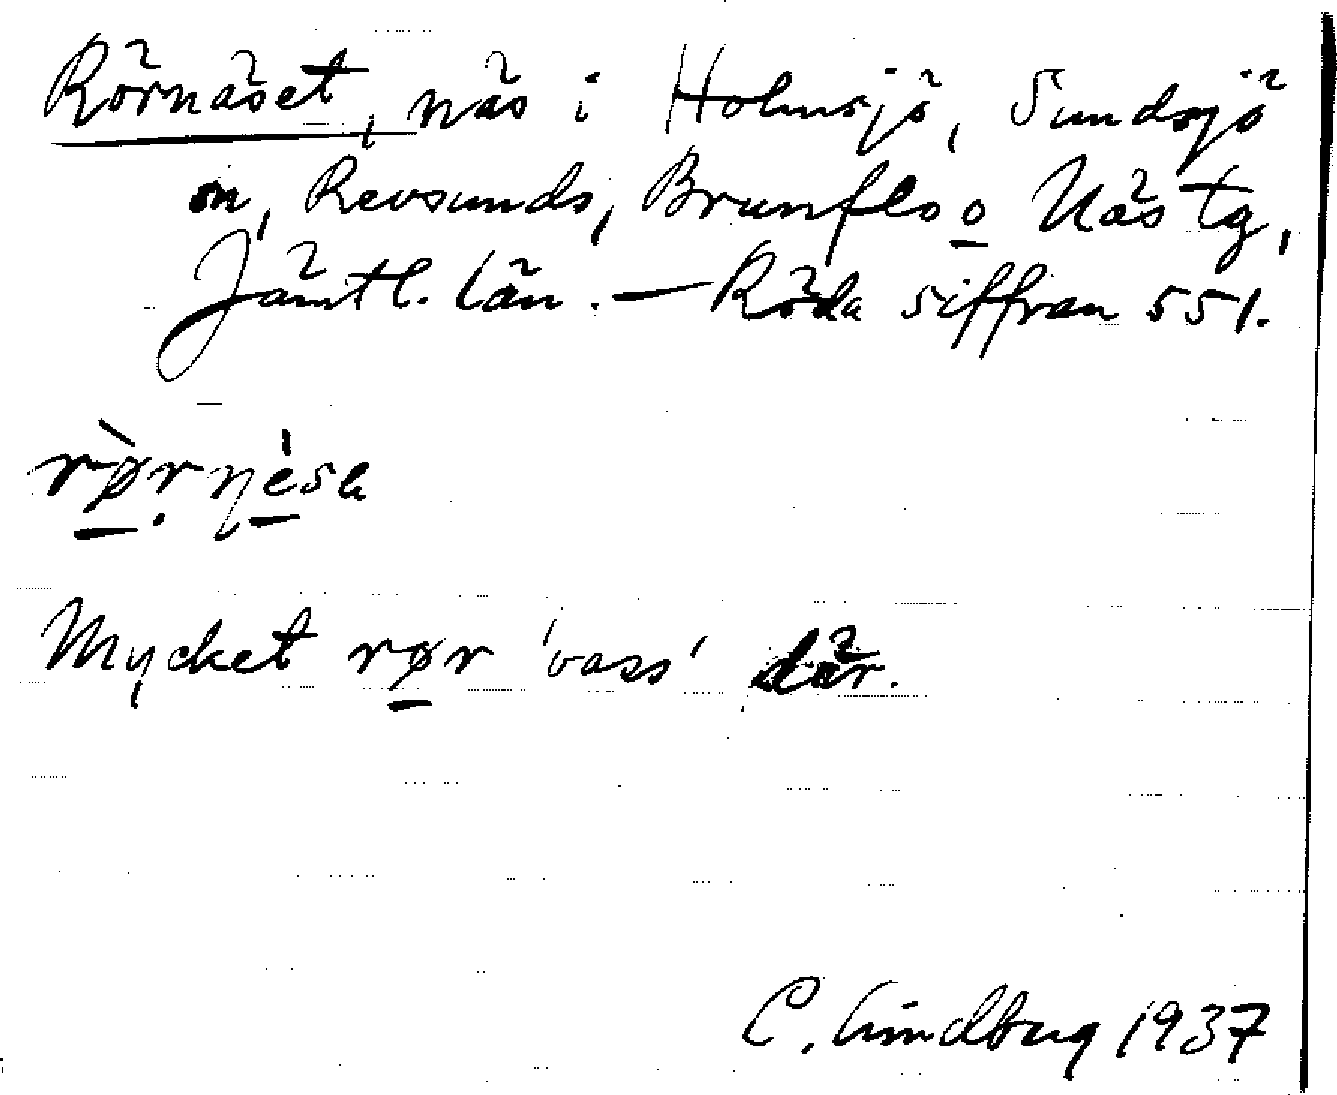 Rörnäset, näs i Holmsjö, Sundsjö
sn, Revsunds, Brunflo o Näs tg,
Jämtl. län. — Röda siffran 551.
rø̀rnèsa
Mycket rør 'vass' där.
C. Lindberg 1937